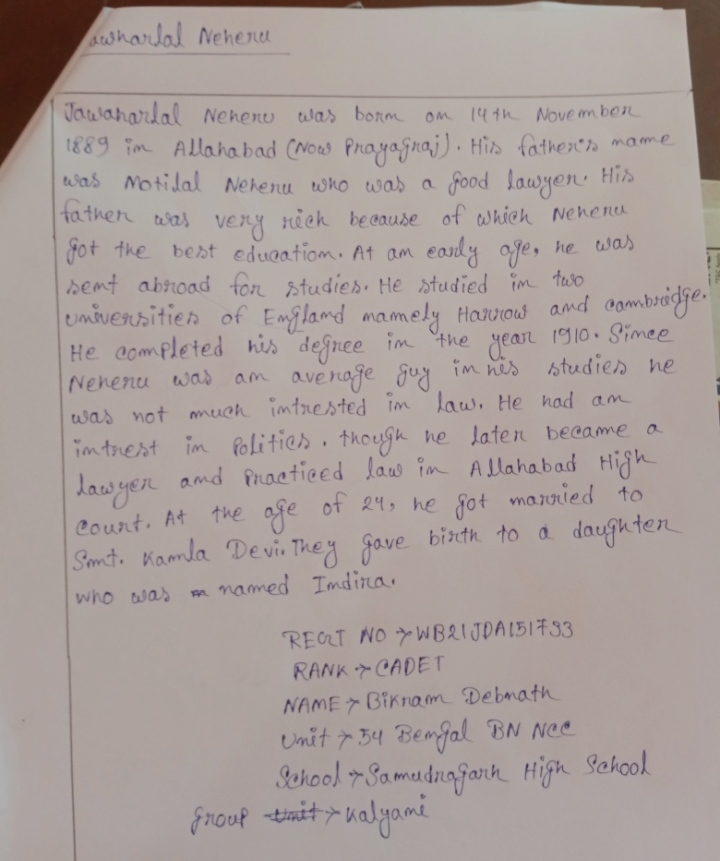 awharlal Neheru
Jawaharlal Neheru was born on 14th November
1889 in Allahabad (Now Prayagraj). His father's name
was Motilal Neheru who was a good lawyer. His
father was very rich because of which Neheru
got the best education. At an early age, he was
sent abroad for studies. He studied in two
universities of England namely Harrow and cambridge.
He completed his degree in the year 1910. Since
Neheru was an average guy in his studies he
was not much intrested in law. He had an
intrest in Politics. though he later became a
lawyer and Practiced law in Allahabad High
court. At the age of 24, he got married to
Smt. Kamla Devi. They gave birth to a daughter
who was named Indira.
REGT NO → WB21JDA151793
RANK → CADET
NAME → Bikram Debnath
Unit → 54 Bengal BN NCC
School → Samudragarh High School
Group → Kalyani